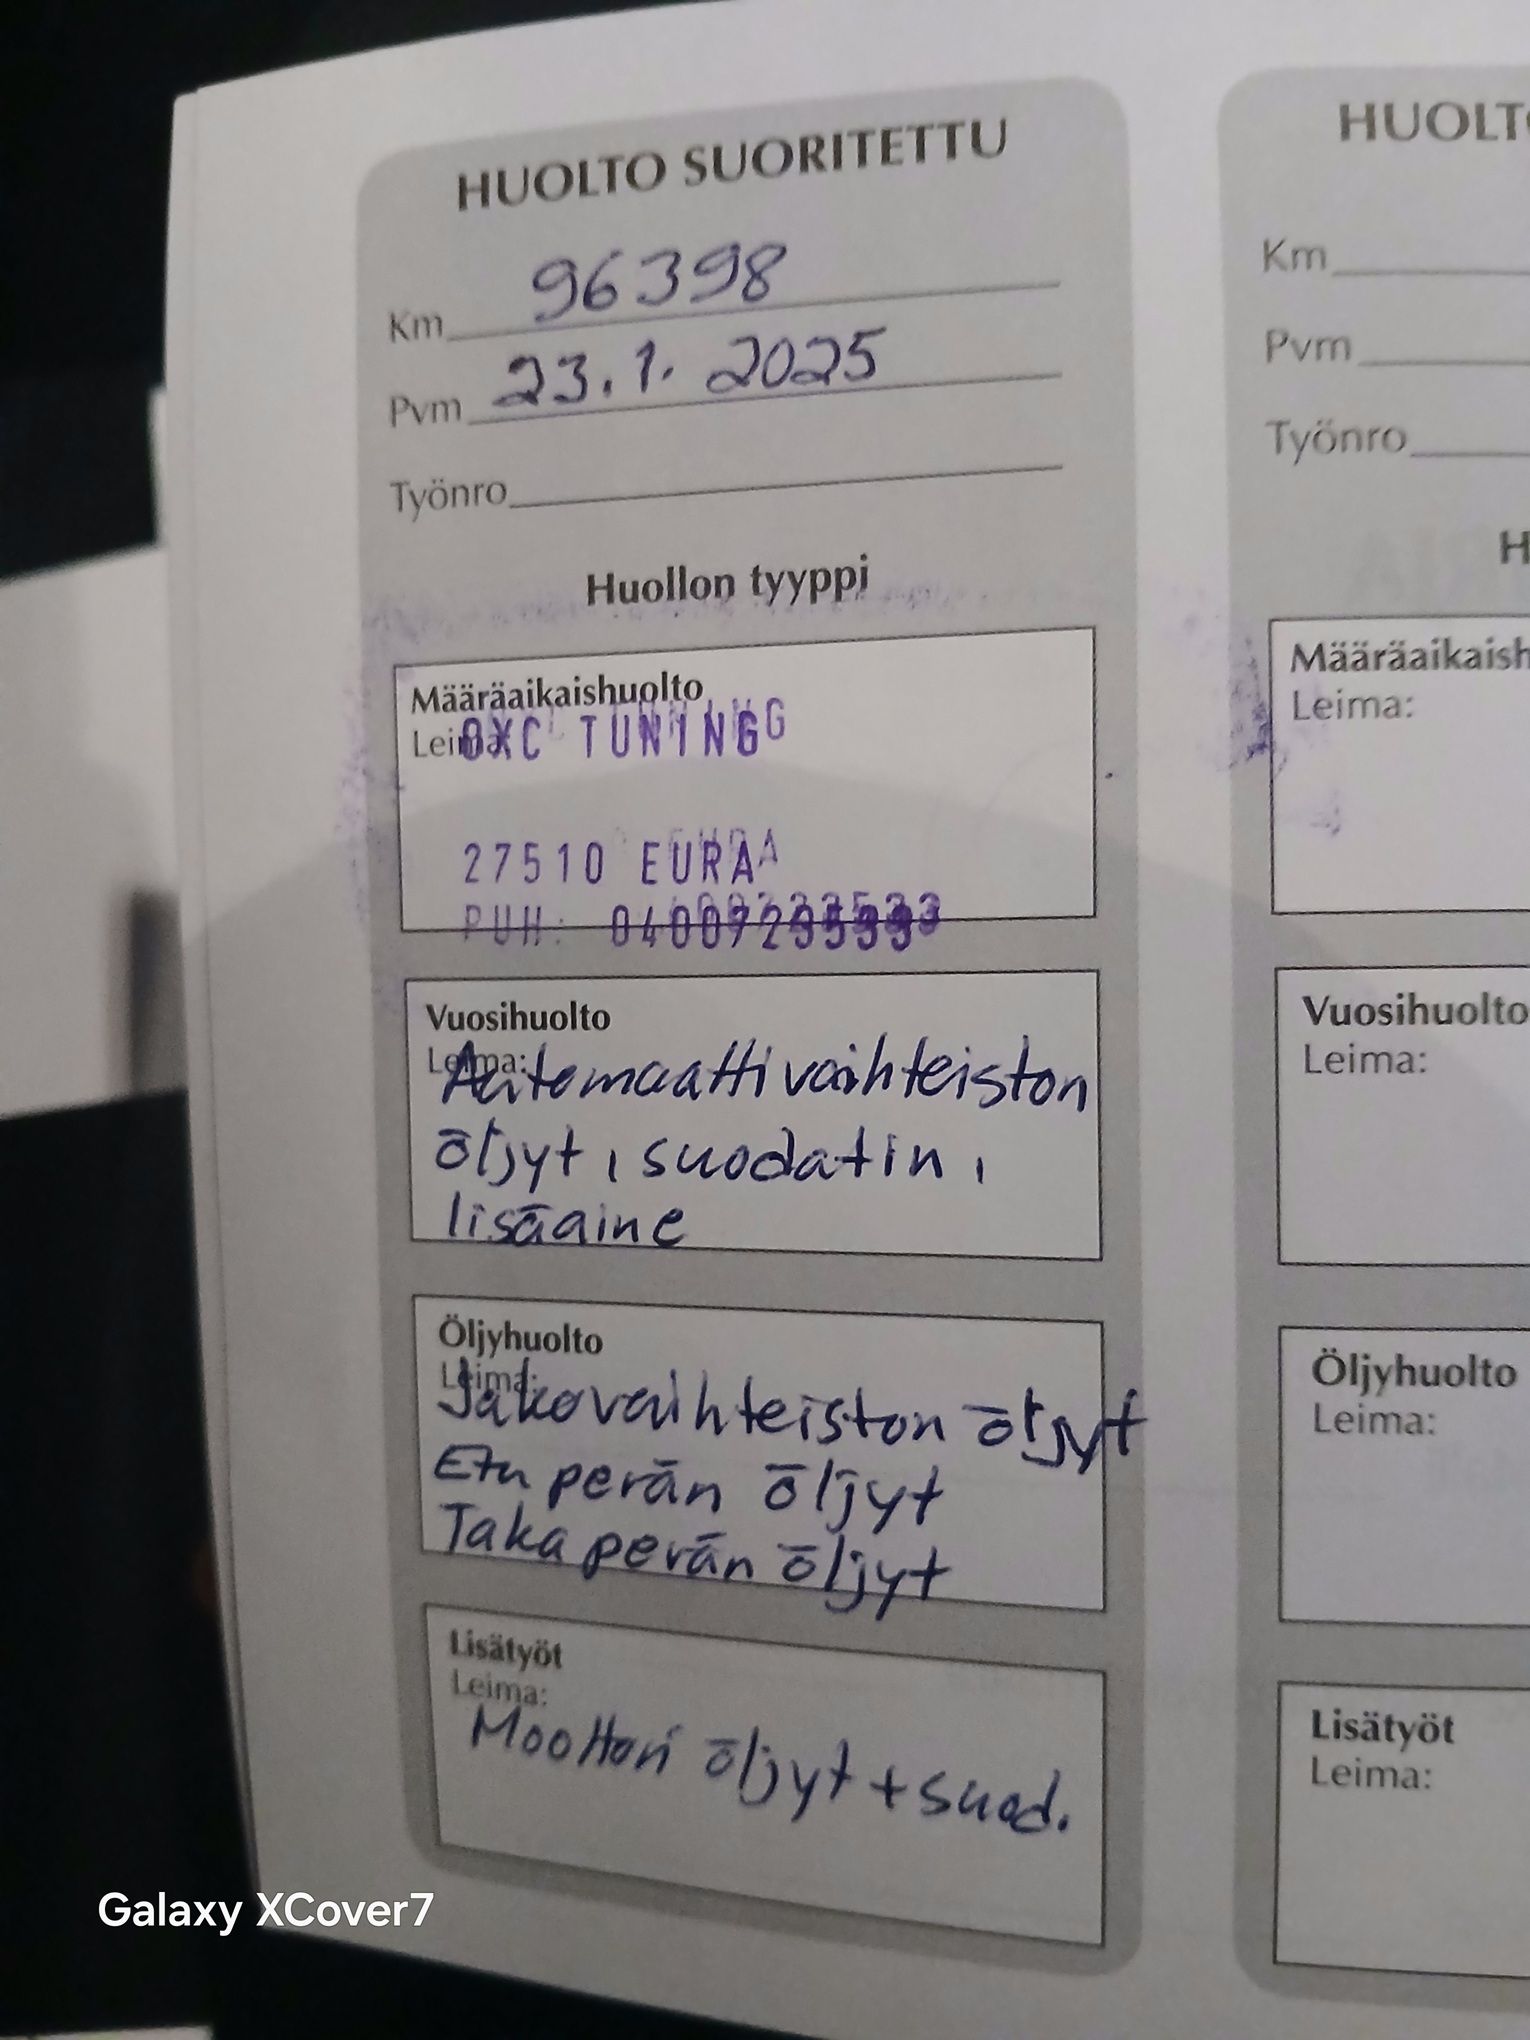 HUOLTO SUORITETTU
Km 96398
Pvm 23.1.2025
Työnro
Huollon tyyppi
Määräaikaishuolto
Leima:
OXC TUNING
27510 EURA
PUH:
Vuosihuolto
Leima:
Automaattivaihteiston
öljyt, suodatin,
lisäaine
Öljyhuolto
Leima:
Jakovaihteiston öljyt
Etu perän öljyt
Taka perän öljyt
Lisätyöt
Leima:
Moottori öljyt + suod.
HUOLTO
Km
Pvm
Työnro
H
Määräaikaish
Leima:
Vuosihuolto
Leima:
Öljyhuolto
Leima:
Lisätyöt
Leima:
Galaxy XCover7